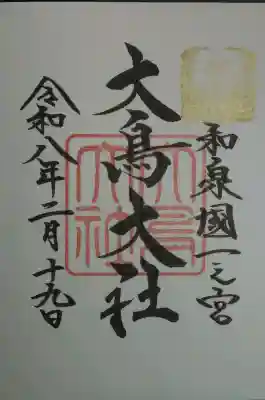 和泉國一之宮
大鳥大社
令和八年二月十九日